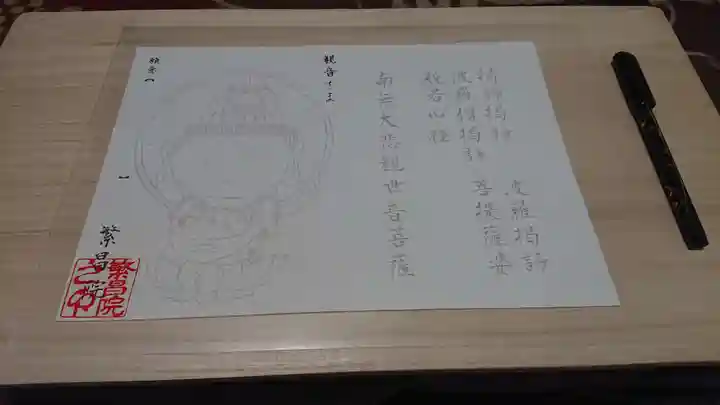 揭諦揭諦　波羅揭諦
波羅僧揭諦　菩提薩婆
般若心経
南無大悲観世音菩薩
観音さま
願意【　】
繁昌院
繁昌院